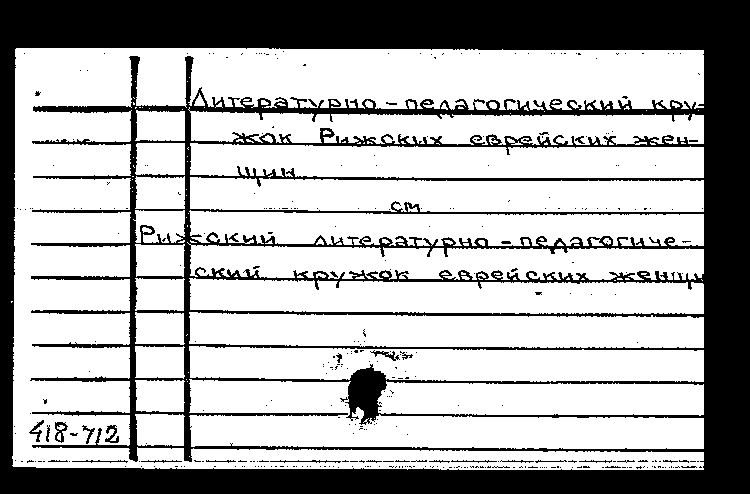 Литературно-педагогический кру-
жок Рижских еврейских жен-
щин
см
Рижский литературно-педагогиче-
ский кружок еврейских женщи
418-712